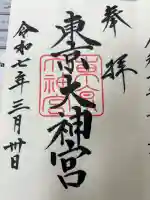 奉拝
東京大神宮
令和七年三月卅日